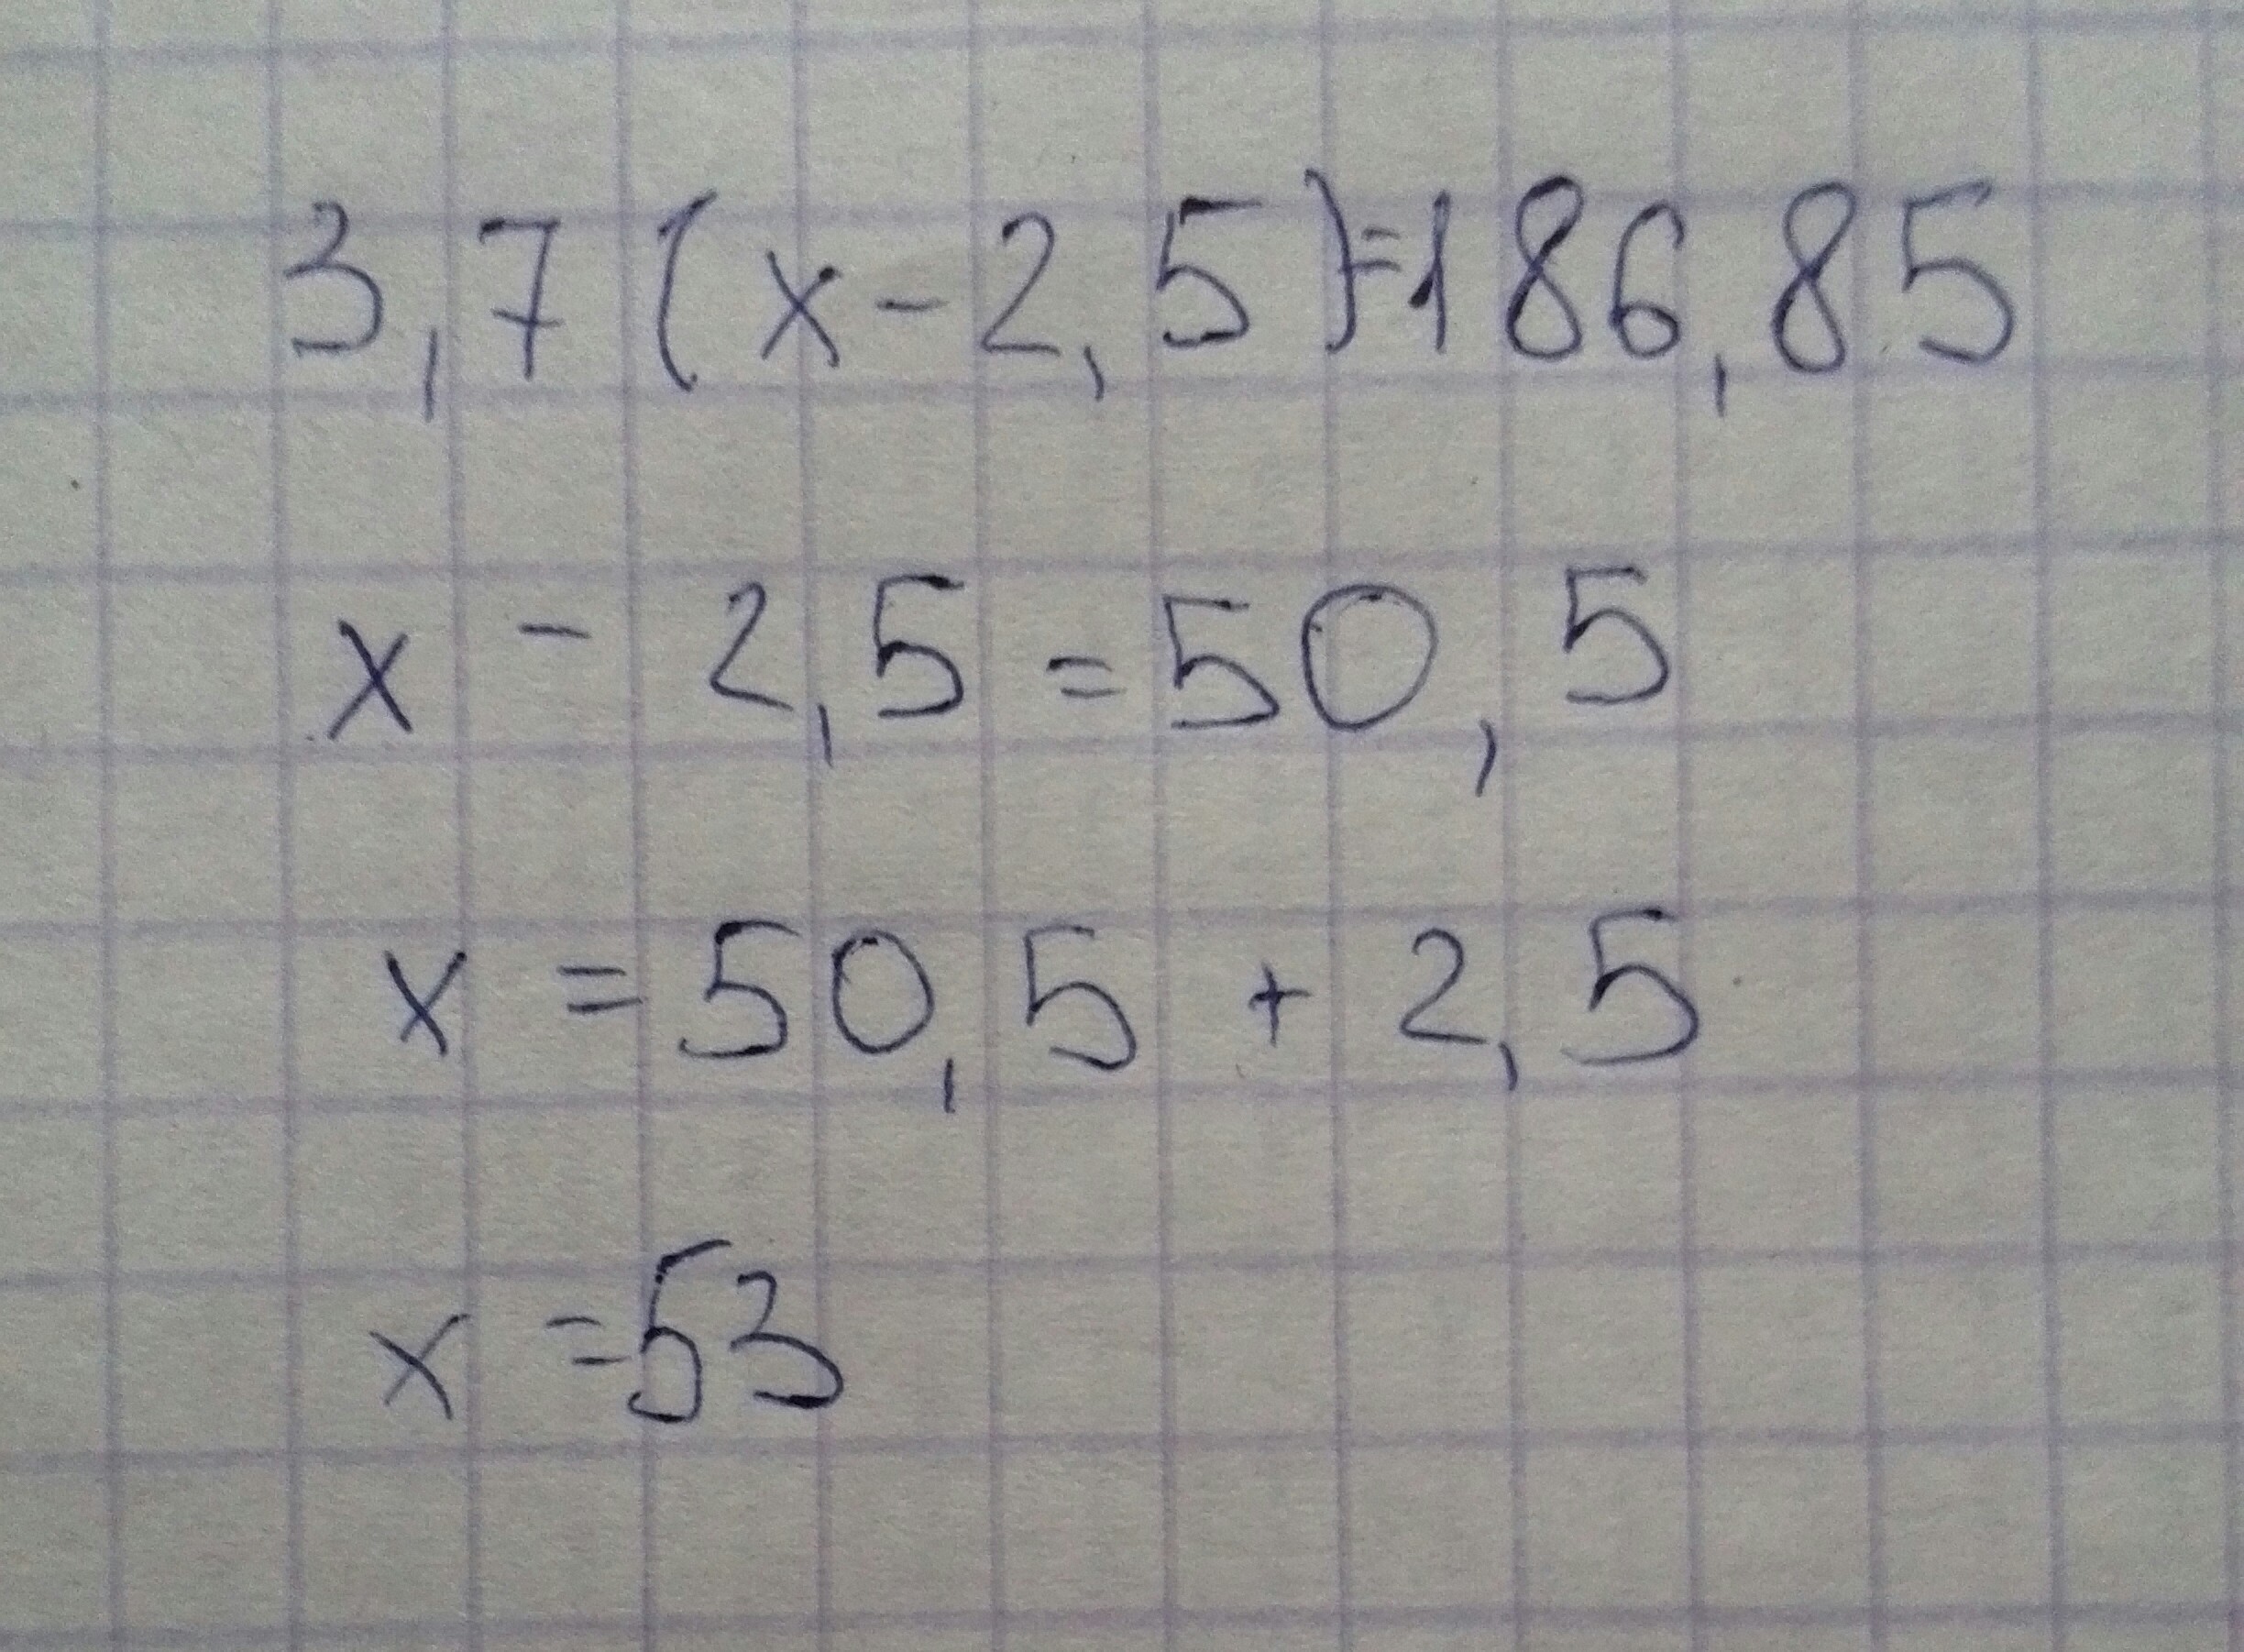 3,7(x-2,5)=186,85
x - 2,5 = 50,5
x = 50,5 + 2,5
x = 53